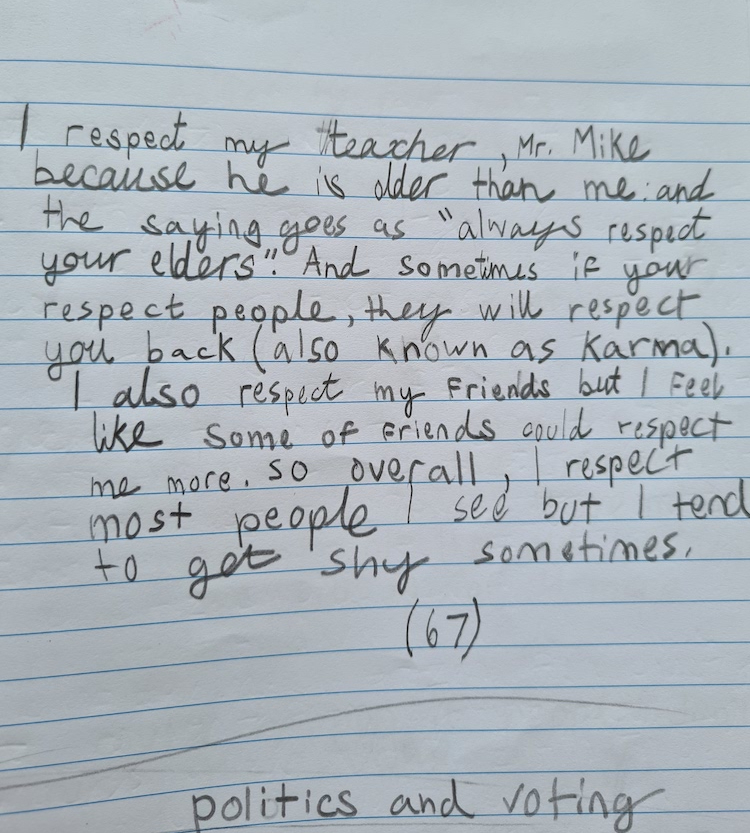 I respect my teacher, Mr. Mike
because he is older than me and
the saying goes as "always respect
your elders". And sometimes if your
respect people, they will respect
you back (also known as karma).
I also respect my friends but I feel
like some of friends could respect
me more. so overall, I respect
most people I see but I tend
to get shy sometimes.
(67)
politics and voting